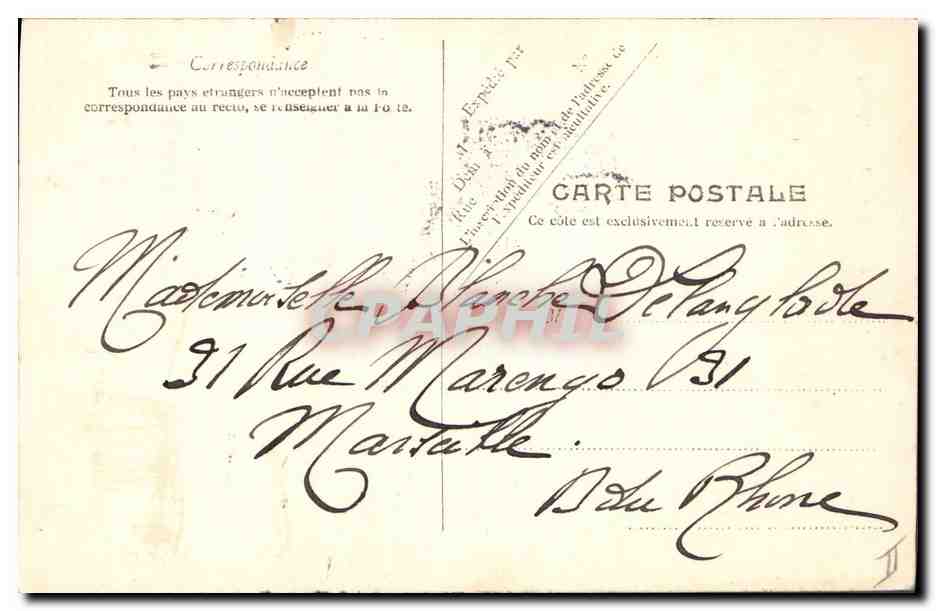 Correspondance
Tous les pays etrangers n'acceptent pas la
correspondance au recto, se renseigner à la Poste.
Expédié par
M
Demt à
Rue
N°
L'insertion du nom et de l'adresse de
l'expéditeur est facultative.
CARTE POSTALE
Ce côté est exclusivement réservé à l'adresse.
Mademoiselle Blanche Delanglade
31 Rue Marengo 31
Marseille.
B du Rhone
CPAPHIL
II